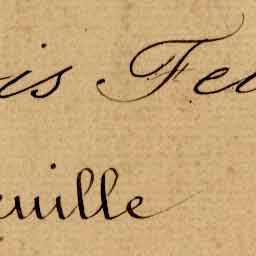 is Fe
euille